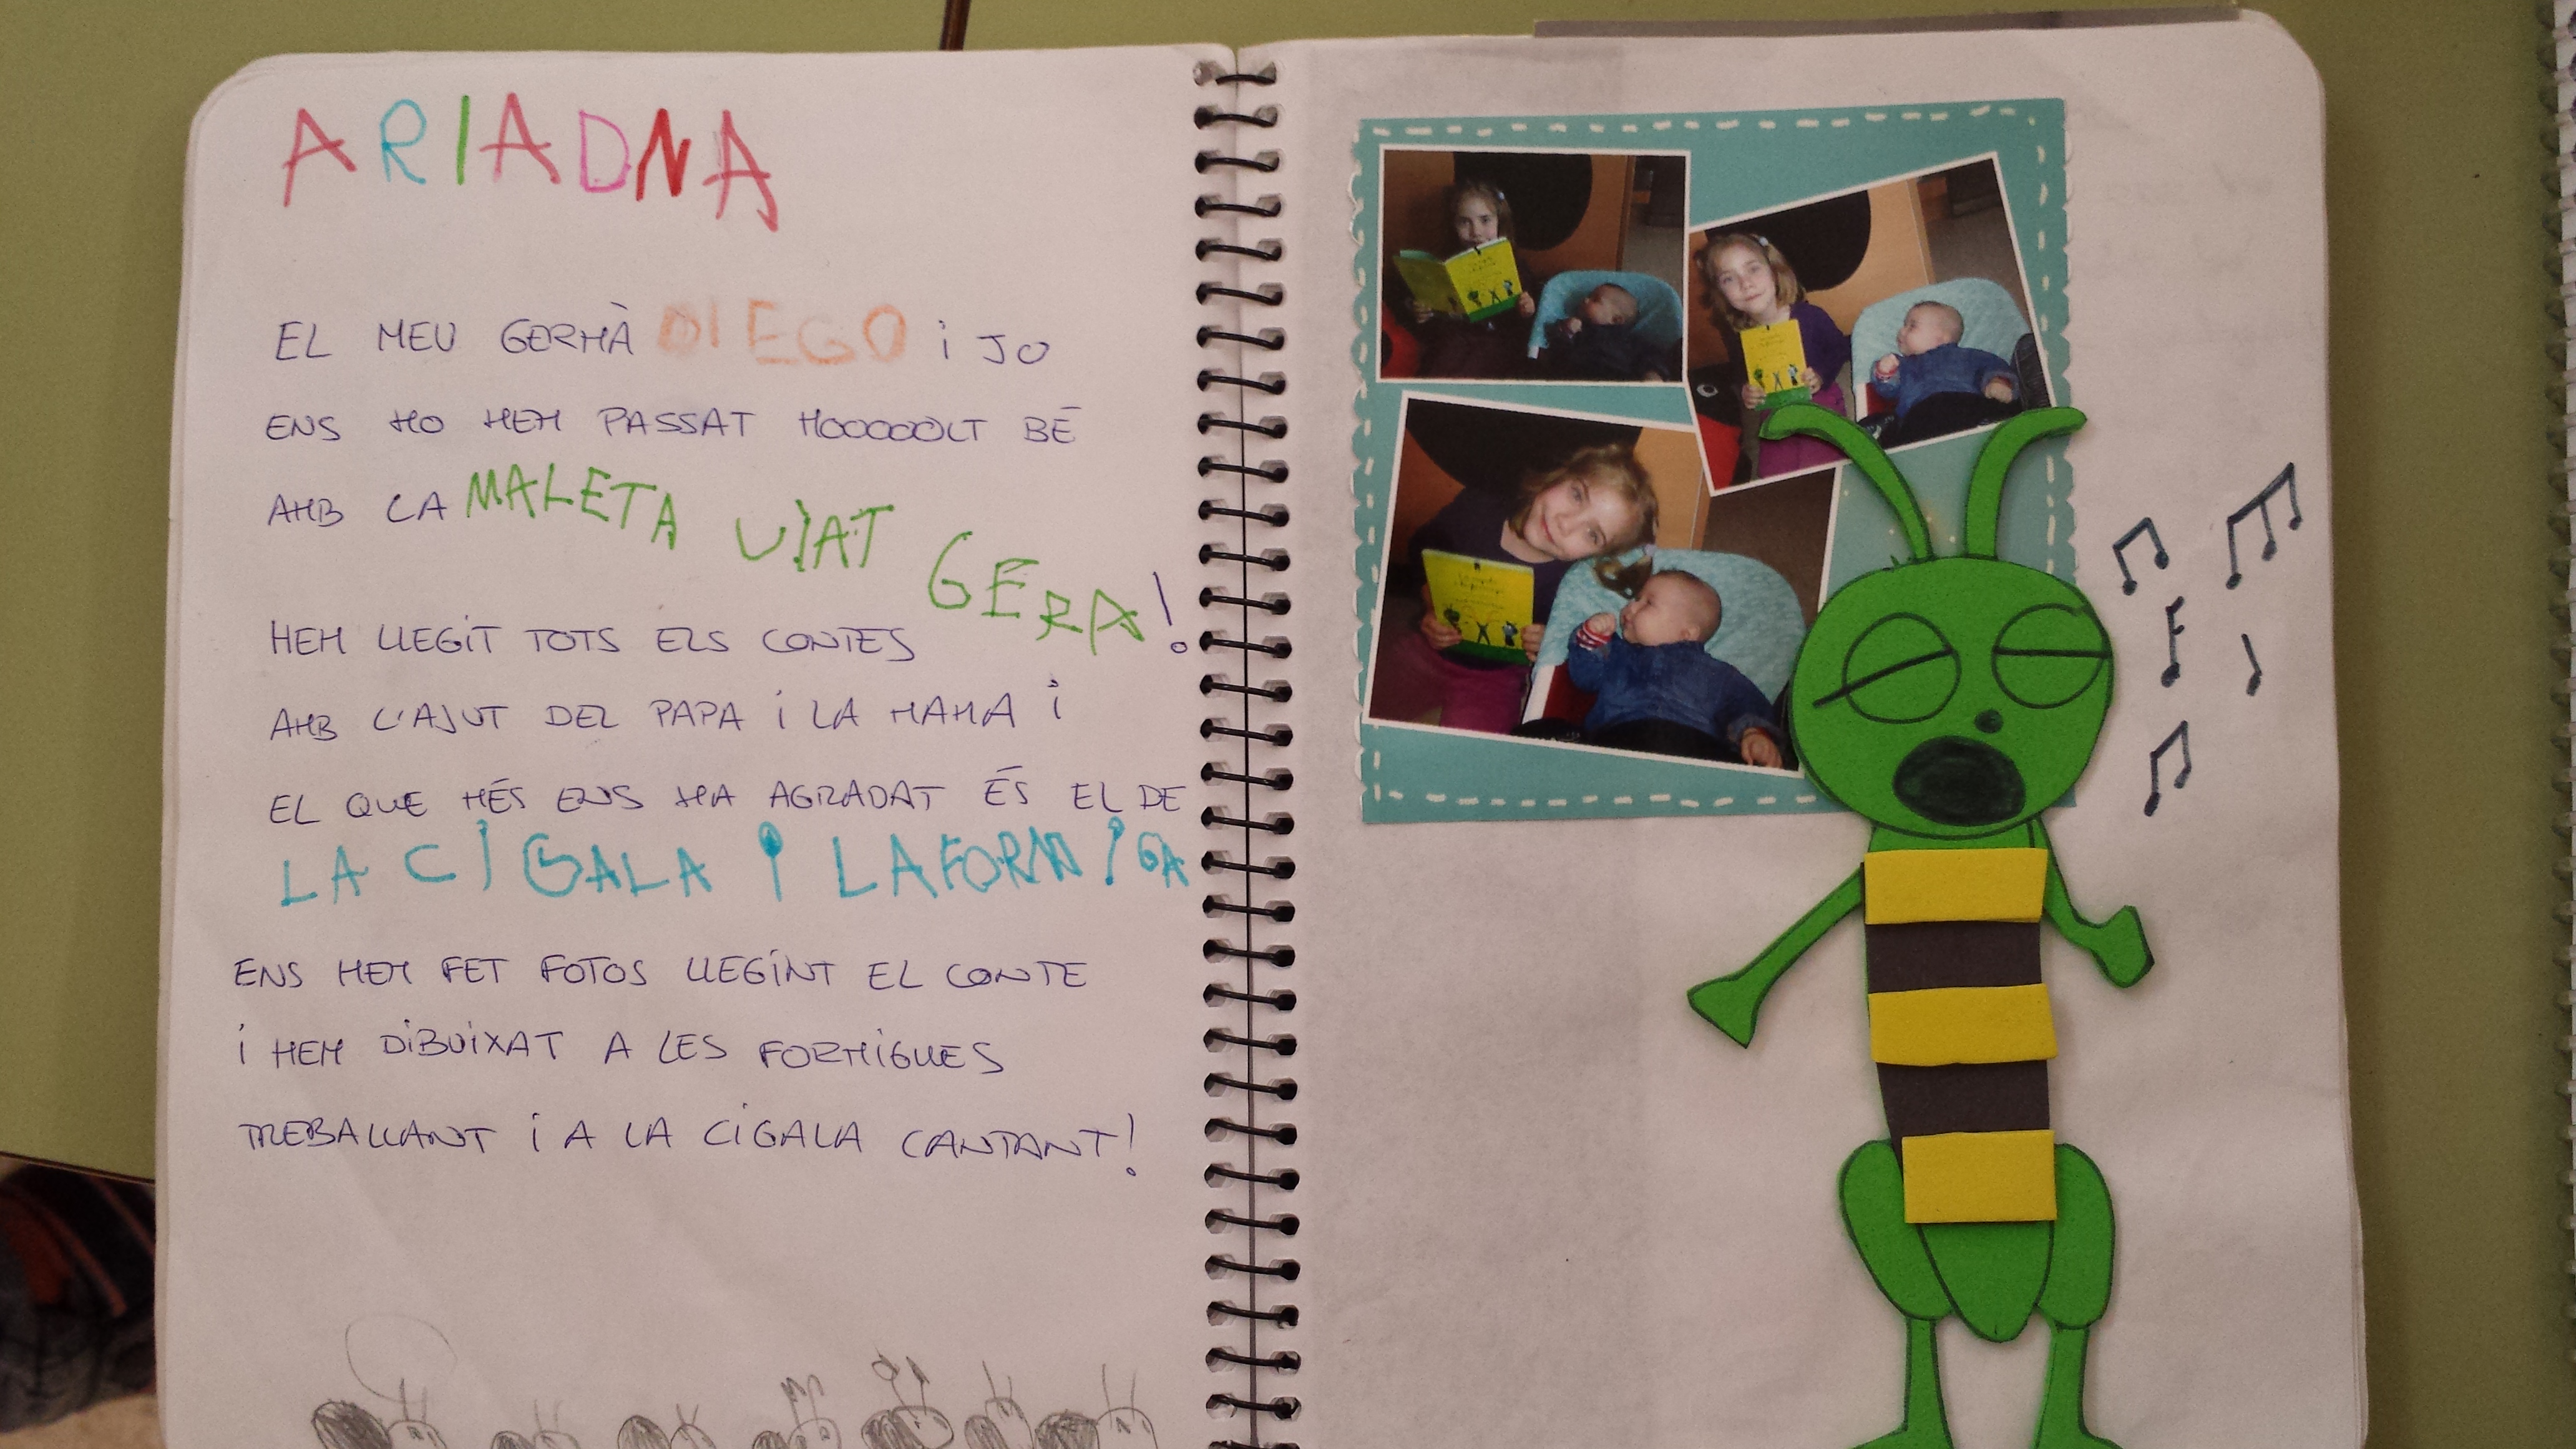 ARIADNA
EL MEU GERMÀ DIEGO i JO
ENS HO HEM PASSAT MOOOOOLT BÉ
AMB LA MALETA VIAT GERA!
HEM LLEGiT TOTS ELS CONTES
AMB L'AJUT DEL PAPA i LA MAMA i
EL QUE MÉS ENS HA AGRADAT ÉS EL DE
LA CIGALA i LA FORMiGA
ENS HEM FET FOTOS LLEGiNT EL CONTE
i HEM DiBUiXAT A LES FORMiGUES
TREBALLANT i A LA CiGALA CANTANT!